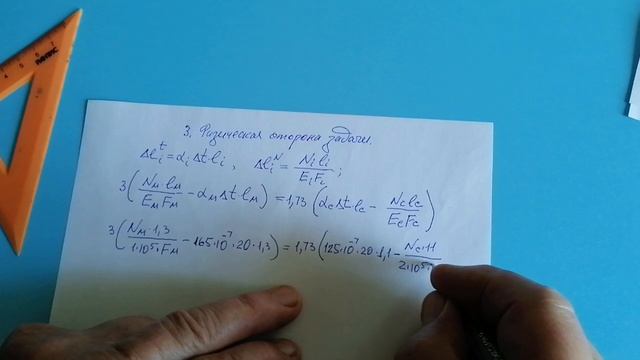 3. Физическая сторона задачи.
Δl_i^t = α_i Δt·l_i , Δl_i^N = N_i l_i / E_i F_i ;
3 ( N_м l_м / E_м F_м − α_м Δt·l_м ) = 1,73 ( α_c Δt·l_c − N_c l_c / E_c F_c )
3 ( N_м · 1,3 / 1·10^5 · F_м − 165·10^-7 · 20 · 1,3 ) = 1,73 ( 125·10^-7 · 20 · 1,1 − N_c · 1,1 / 2·10^5 ·